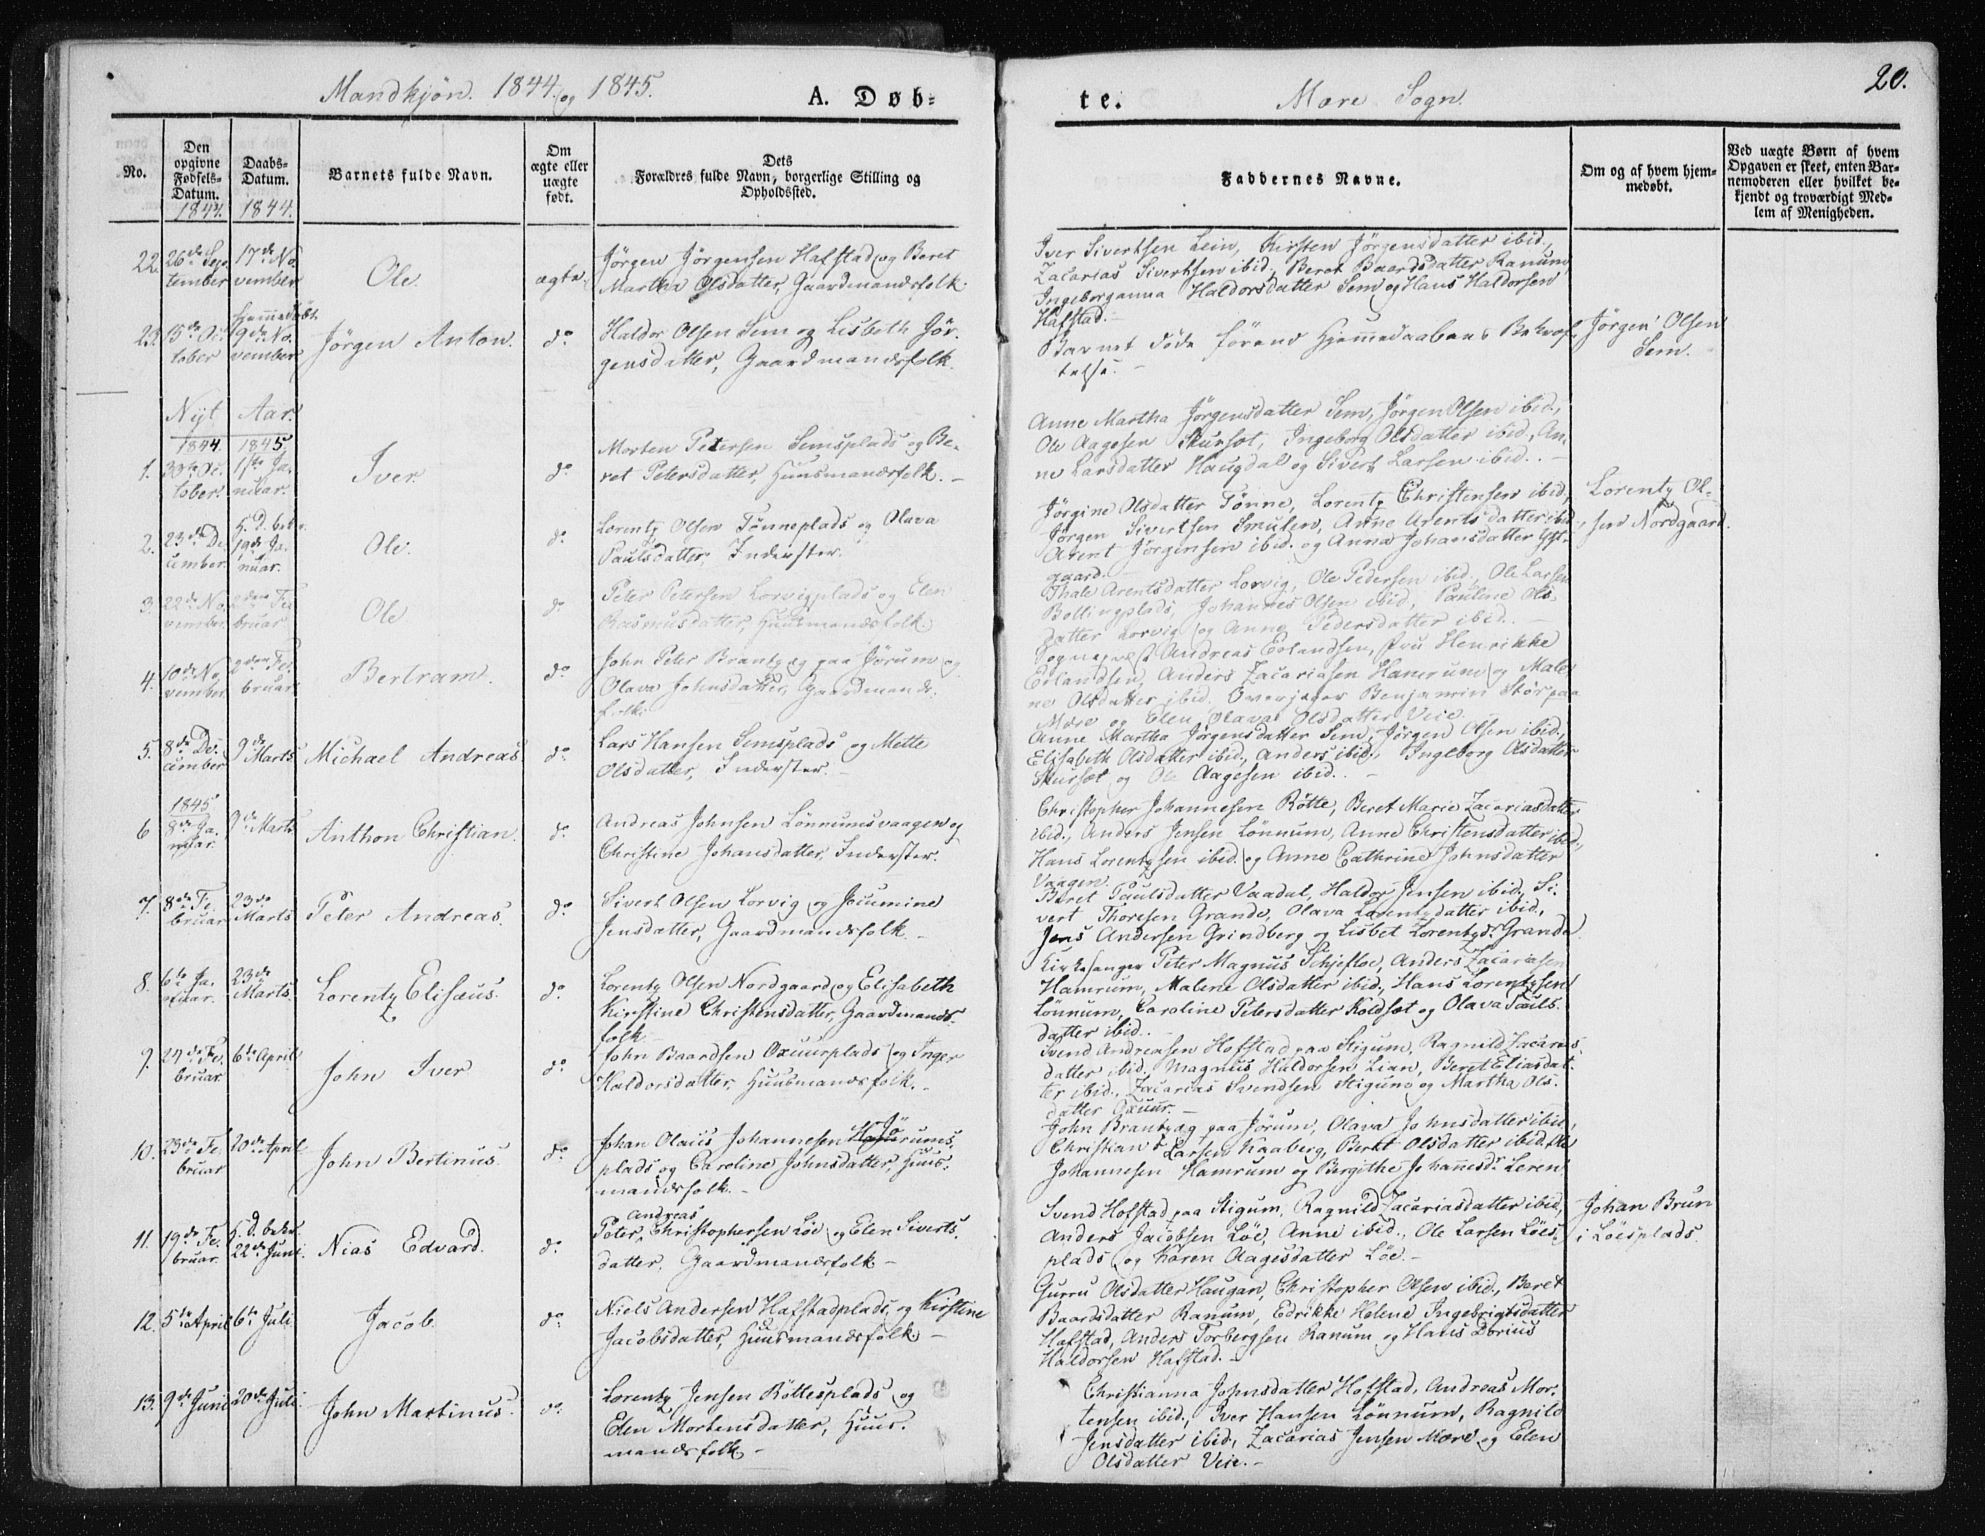 Mandkjøn. 1844 og 1845.
A. Døb-
te.
Mære Sogn.
20.
No.
Den opgivne Fødsels-Datum.
1844.
Daabs-Datum.
1844.
Barnets fulde Navn.
Om ægte eller uægte født.
Dets Forældres fulde Navn, borgerlige Stilling og Opholdssted.
Faddernes Navne.
Om og af hvem hjemmedøbt.
Ved uægte Børn af hvem Opgaven er skeet, enten Barnemoderen eller hvilket bekjendt og troværdigt Medlem af Menigheden.
22. 26de September 17de November Ole. ægte.
Jørgen Jørgensen Hafstad og Beret
Martha Olsdatter, Gaardmandsfolk.
Iver Sivertsen Lein, Kirsten Jørgensdatter ibid.,
Zacarias Sivertsen ibid., Beret Baardsdatter Ranum,
Ingeborganna Haldorsdatter Sem og Hans Haldorsen
Hafstad.
23. 15de October Hjemmedøbt 9de November Jörgen Anton. do
Haldor Olsen Sem og Lisbeth Jör-
gensdatter, Gaardmandsfolk.
Barnet døde förend Hjemmedaabens Bekræf-
telse.
Jörgen Olsen
Sem.
Nyt Aar.
1844. 1845
1. 30te October. 1ste Januar. Iver. do
Morten Petersen Semsplads og Be-
ret Petersdatter, Huusmandsfolk.
Anne Martha Jörgensdatter Sem, Jørgen Olsen ibid.,
Ole Aagesen Skurset, Ingeborg Olsdatter ibid., An-
ne Larsdatter Haugdal og Sivert Larsen ibid.
2. 23de December. H. D. bek. 19de Januar. Ole. do
Lorentz Olsen Tønneplads og Olava
Paulsdatter, Inderster.
Jørgine Olsdatter Tønne, Lorentz Christensen ibid.,
Jørgen Sivertsen Smulen, Anne Arentsdatter ibid.,
Arent Jørgensen ibid. og Anna Johansdatter
gaard.
Lorentz Ol-
sen Nordgaard.
3. 22de November 2den Februar Ole do
Peter Petersen Lorvigplads og Elen
Rasmusdatter, Huusmandsfolk
Thale Arentsdatter Lorvig, Ole Pedersen ibid., Ole Larsen
Bollingplads, Johannes Olsen ibid., Pauline Ols-
datter Lorvig og Anne Pedersdatter ibid.
4. 10de November 2den Februar Bertram. do
John Peter Brantzæg paa Jörum og
Olava Johnsdatter, Gaardmands-
folk.
Sognepræst Andreas Erlandsen, Fru Henrikke
Erlandsen, Anders Zacariasen Hamrum og Male-
ne Olsdatter ibid. Overjæger Benjamin Stör paa
Mære og Elen Olava Olsdatter Veie.
5. 8de December 9de Marts Michael Andreas. do
Lars Hansen Semsplads og Mette
Olsdatter, Inderster.
Anne Martha Jørgensdatter Sem, Jørgen Olsen ibid.,
Elisabeth Olsdatter ibid., Anders ibid., Ingeborg Olsdatter
Skurset og Ole Aagesen ibid.
1845
6 8de Januar. 9de Marts Anthon Christian. do
Andreas Johnsen Lönnumsvaagen og
Christine Johansdatter, Inderster.
Christopher Johannesen Rötte, Beret Marie Zacariasdatter
ibid., Anders Jensen Lönnum, Anne Christensdatter ibid.,
Hans Lorentzsen ibid. og Anne Cathrine Johnsdatter
Vaagen.
7. 8de Februar 23de Marts Peter Andreas. do
Sivert Olsen Lorvig og Jocumine
Jensdatter, Gaardmandsfolk.
Beret Paulsdatter Vaadal, Haldor Jensen ibid., Si-
vert Thoresen Grande, Olava Lorentzdatter ibid.,
Jens Andersen Grindberg og Lisbet Lorentzdr. Grande.
8. 6te Januar. 23de Marts. Lorentz Elisæus. do
Lorentz Olsen Nordgaard og Elisabeth
Kirstine Christensdatter, Gaardmands-
folk
Kirkesanger Peter Magnus Schjefloe, Anders Zacariasen
Hamrum, Malene Olsdatter ibid., Hans Lorentzsen
Lönnum, Caroline Petersdatter Koldset og Olava Pauls-
datter ibid.
9. 27de Februar. 6te April John Iver do
John Baardsen Oxuurplads og Inger
Haldorsdatter, Huusmandsfolk.
Svend Andreasen Hofstad paa Stigum, Ragnild Zacarias-
datter ibid., Magnus Haldorsen Lian, Beret Eliasdat-
ter ibid., Zacarias Svendsen Stigum og Martha Ols-
datter Oxuur.
10. 23de Februar 20de April John Bertinus. do
Johan Olaus Johannesen Jörums-
plads og Caroline Johnsdatter, Huus-
mandsfolk.
John Brantzæg paa Jørum, Olava Johnsdatter ibid.,
Christian Larsen Kaaberg, Beret Olsdatter ibid., Ole
Johannesen Hamrum og Birgithe Johannesdr. Leren
11. 19de Februar. H. D. bekr. 22de Juni. Nias Edvard. do
Peter Andreas Christophersen Löe og Elen Siverts-
datter. Gaardmandsfolk
Svend Hofstad paa Stigum, Ragnild Zacariasdatter ibid.,
Anders Jacobsen Löe, Anne ibid., Ole Larsen Löes-
plads og Karen Aagesdatter Löe.
Johan Brun
i Löesplads
12. 5te April 6te Juli Jacob. do
Niels Andersen Hafstadplads og Kirstine
Jacobsdatter, Huusmandsfolk
Gurru Olsdatter Haugan, Christopher Olsen ibid., Beret
Baardsdatter Ranum, Edrikke Helene Ingebrigtsdatter
Hafstad, Anders Torbergsen Ranum og Hans Dorius
Haldorsen Hafstad.
13. 9de Juni 20de Juli. John Martinus. do
Lorentz Jensen Röttesplads og
Elen Mortensdatter, Huus-
mandsfolk
Christianna Johnsdatter Hofstad, Andreas Mor-
tensen ibid., Iver Hansen Lönnum, Ragnild
Jensdatter ibid., Zacarias Jensen Mære og Elen
Olsdatter Veie.